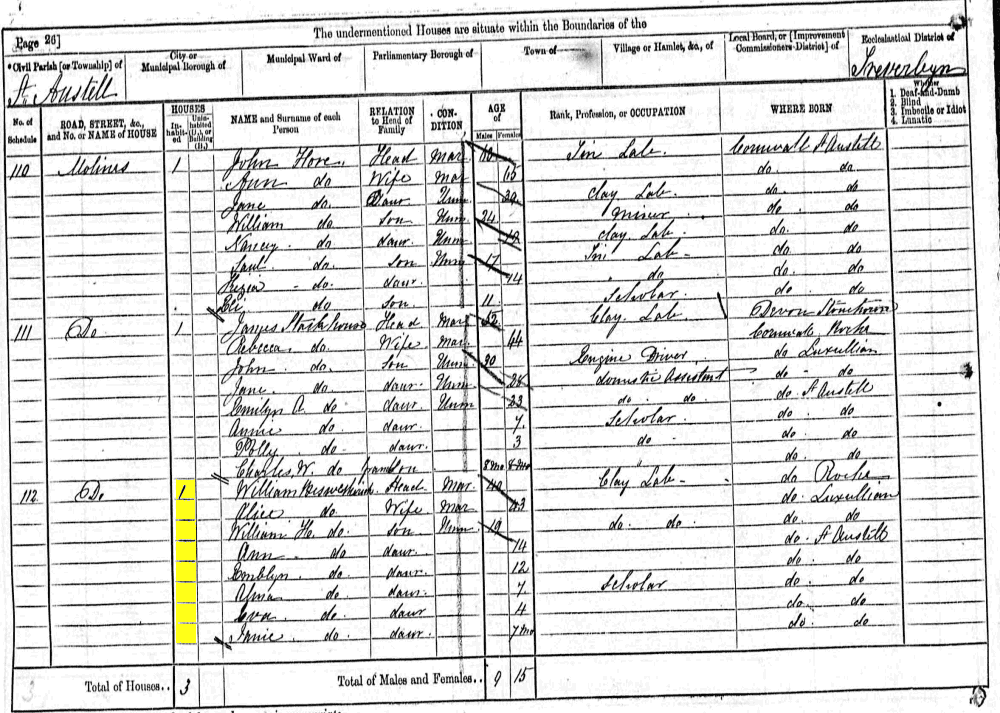 The undermentioned Houses are situate within the Boundaries of the
Page 26]
*Civil Parish [or Township] of St. Austell
City or Municipal Borough of
Municipal Ward of
Parliamentary Borough of
Town of
Village or Hamlet, &c., of
Local Board, or [Improvement Commissioners District] of
Ecclesiastical District of Treverbyn
No. of Schedule
ROAD, STREET, &c., and No. or NAME of HOUSE
HOUSES
In-habit-ed
Unin-habited (U.), or Building (B.)
NAME and Surname of each Person
RELATION to Head of Family
CON-DITION
AGE of
Males
Females
Rank, Profession, or OCCUPATION
WHERE BORN
Whether
1. Deaf-and-Dumb
2. Blind
3. Imbecile or Idiot
4. Lunatic
110 Molinis 1 John Hore Head Mar Tin Lab. Cornwall St Austell
Ann do Wife Mar do. do.
Jane do. Daur Unm 20 Clay Lab. do. do
William do son Unm 24 Miner do. do
Nancy do daur. Unm 19 Clay Lab. do. do
Saul do. son Unm 17 Tin Lab. do. do
do. daur. 14 do do. do
Eli do son 11 Scholar. do. do
111 Do 1 James Stockhouse Head Mar 52 Clay Lab. Devon
Rebecca do. Wife Mar 44 Cornwall Roche
John do son Unm 30 Engine Driver do Luxullian
Jane do daur. Unm 28 domestic Assistant do - do
Emilyn A. do daur. Unm 23 do. do. do. St Austell
Annie do daur. 7 Scholar do. do
Polly do. daur. 3 do. do. do
Charles. W. do grandson 8 mo do. do
112 Do 1 William Head Mar 40 Clay Lab. do Roche
Alice do Wife Mar 43 do. Luxullian
William H. do. son Unm 19 do. do. do. do
Ann do daur. 14 do. St Austell
Emblyn do. daur. 12 do. do
Alma do. daur. 7 Scholar do. do
Eva do. daur 4 do. do
Janie do. daur. 7 mo do. do
3 Total of Houses.. 3 Total of Males and Females.. 9 15